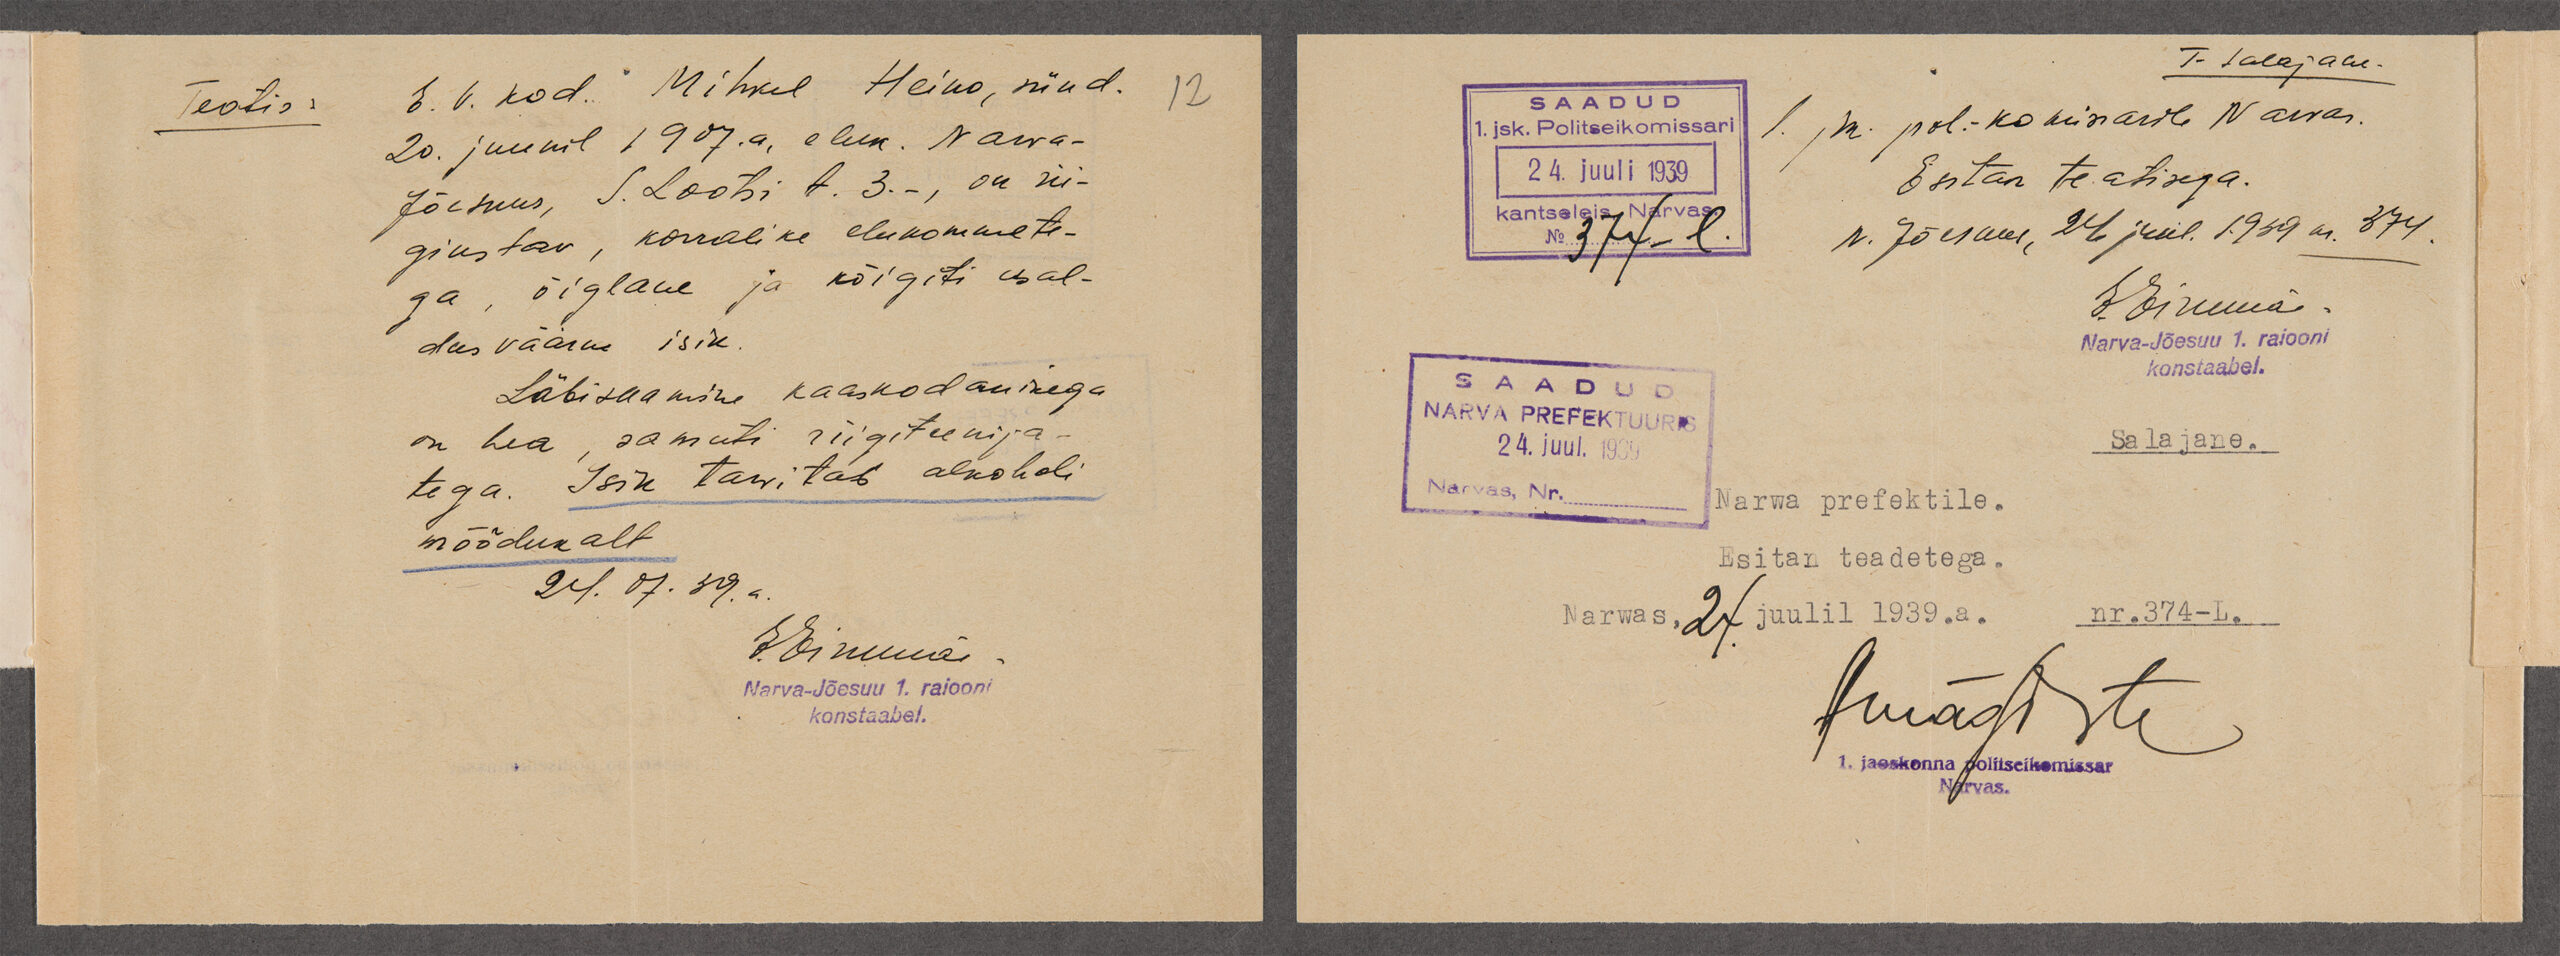 12
Teatis:
E. V. kod. Mihkel Heino, sünd.
20. juunil 1907.a, elun. Narva-
Jõesuus, S. Lootsi t. 3.-, on rii-
giustav, korralike elukommete-
ga, õiglane ja kõigiti usal-
dusväärne isik.
Läbisaamine kaaskodanikega
on hea, samuti riigiteenija-
tega. Isik tarvitab alkoholi
mõõdukalt
24. 07. 39.a.
Narva-Jõesuu 1. raiooni
konstaabel.
T. Salajane.
SAADUD
1. jsk. Politseikomissari
24. juuli 1939
kantseleis, Narvas.
№ 374-L.
1. jsk. pol.-komissarile Narvas.
Esitan teatisega.
N. Jõesuus, 24 juul. 1939 nr. 374.
Narva-Jõesuu 1. raiooni
konstaabel.
SAADUD
NARVA PREFEKTUURIS
24. juul. 1939
Narvas, Nr.
Salajane.
Narwa prefektile.
Esitan teadetega.
Narwas, 24. juulil 1939.a. nr.374-L.
1. jaoskonna politseikomissar
Narvas.